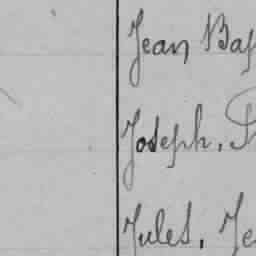 Jean Bap
Joseph,
Jules, Je